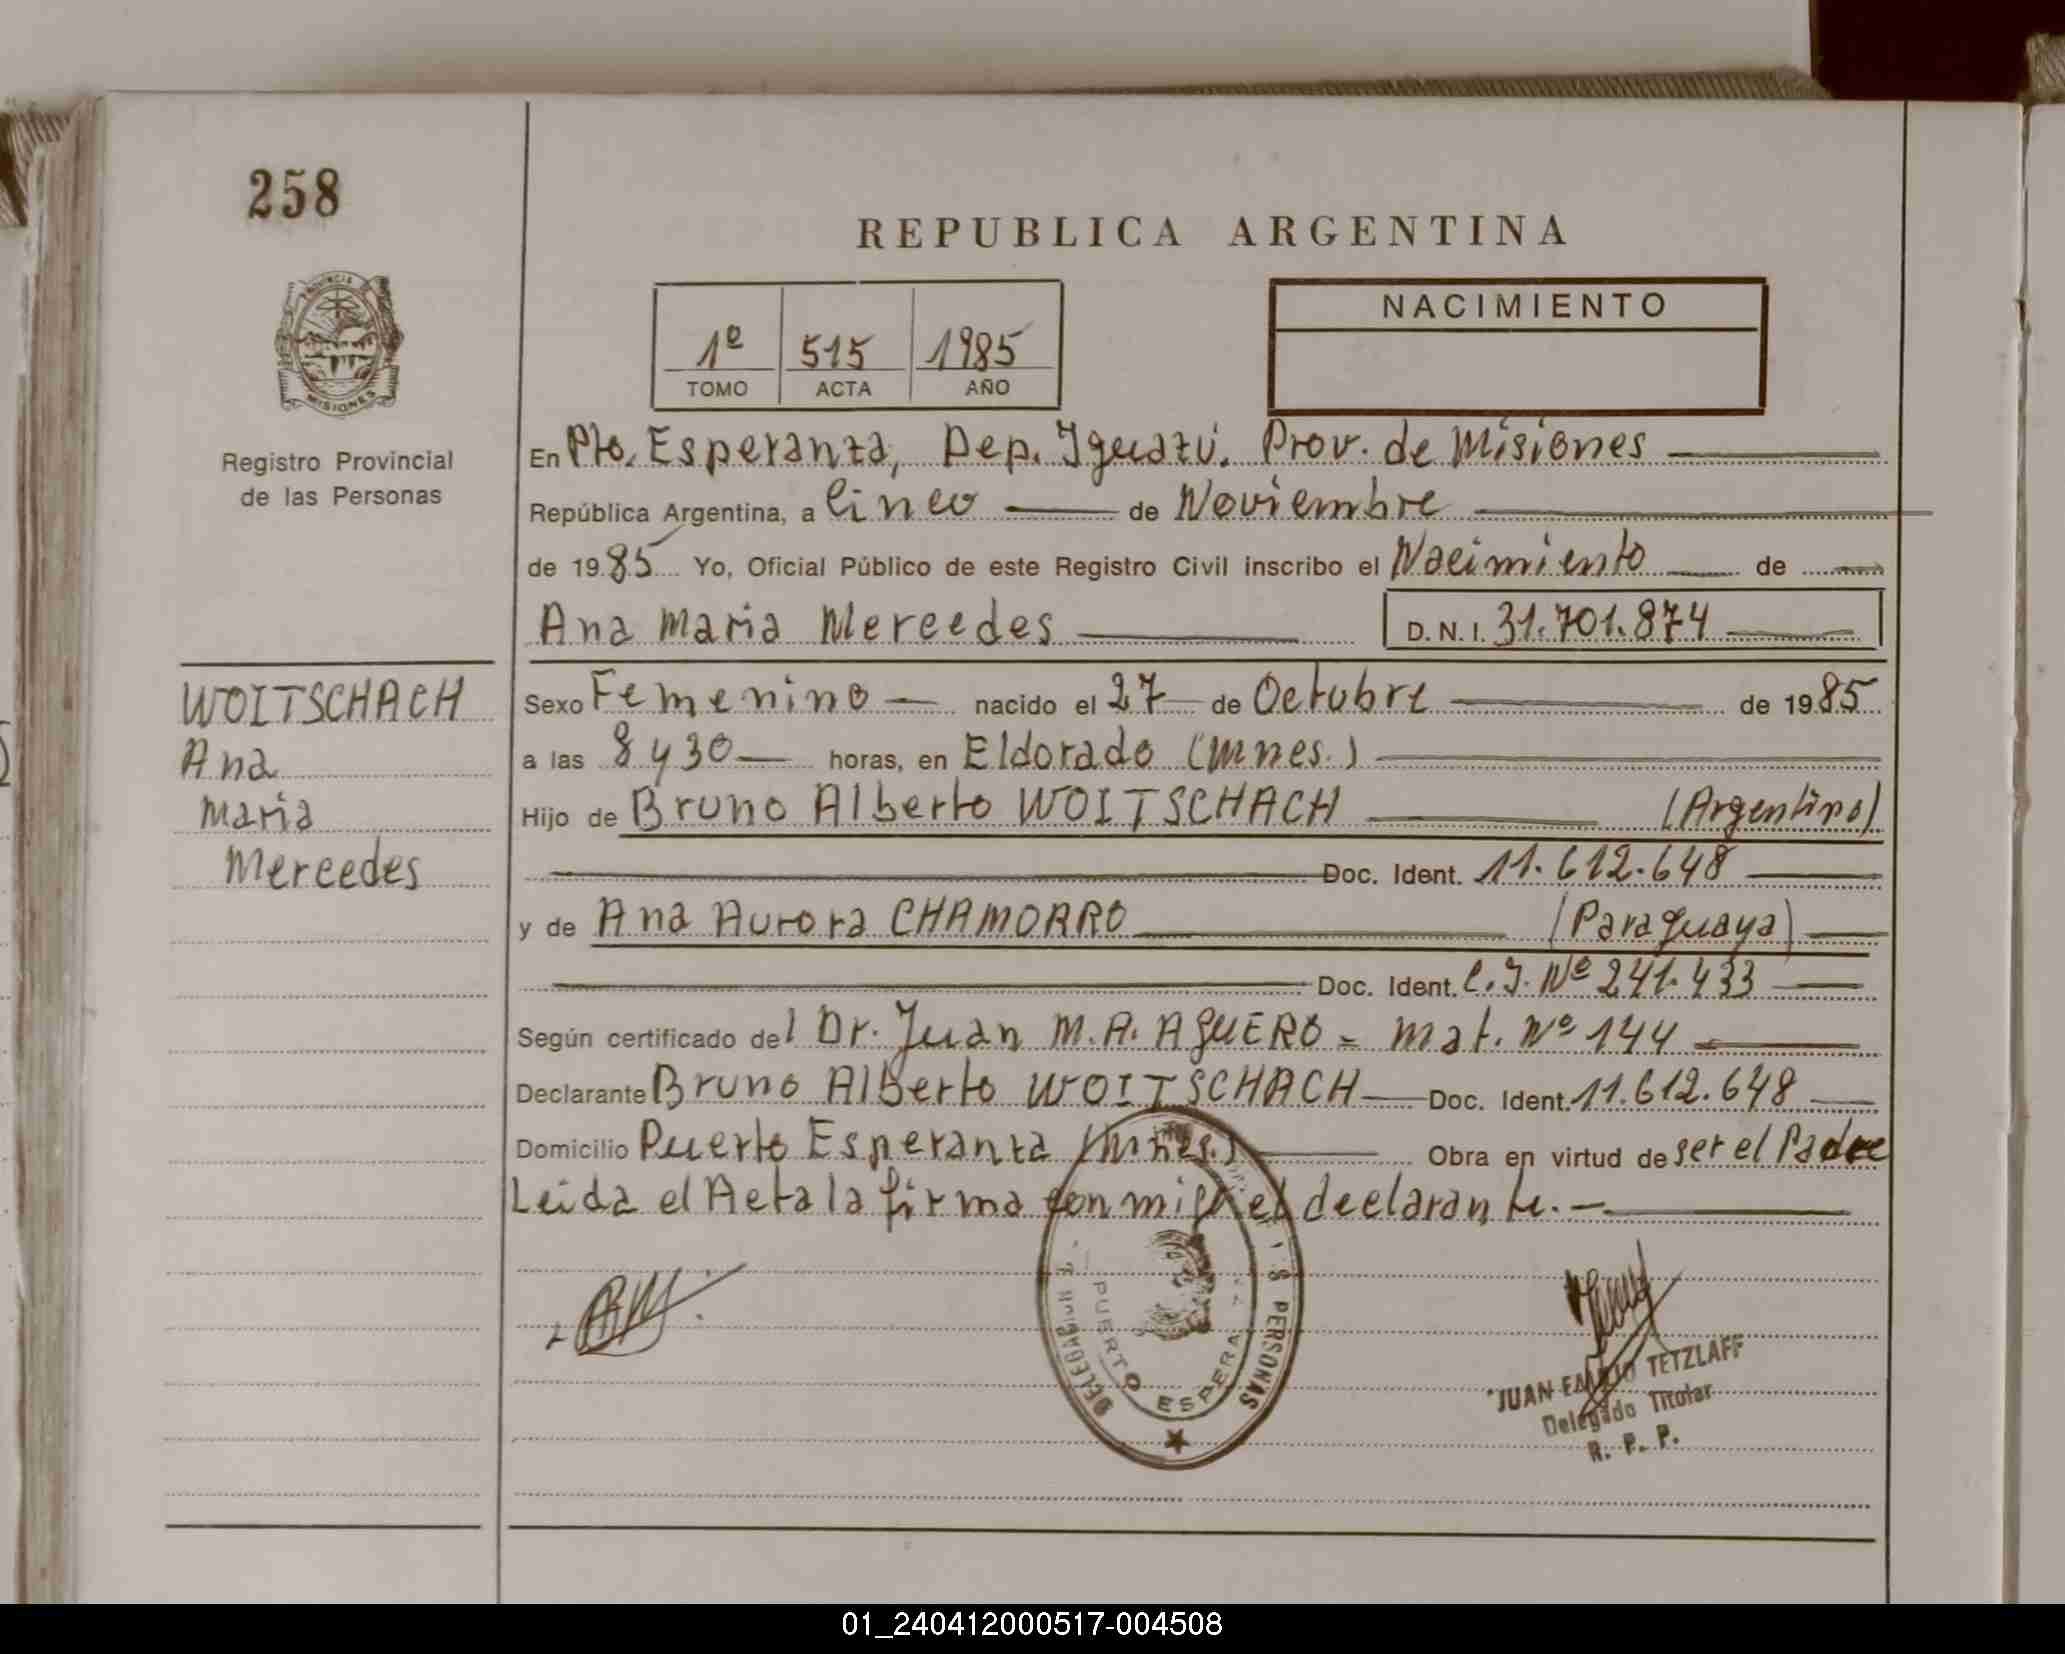 258
REPUBLICA ARGENTINA
PROVINCIA
MISIONES
1º 515 1985
TOMO ACTA AÑO
NACIMIENTO
Registro Provincial
de las Personas
En Pto. Esperanza, Dep. Iguazú. Prov. de Misiones
República Argentina, a Cinco de Noviembre
de 1985 Yo, Oficial Público de este Registro Civil inscribo el Nacimiento de
Ana Maria Mercedes D.N.I. 31.701.874
WOITSCHACH
Ana
Maria
Mercedes
Sexo Femenino nacido el 27 de Octubre de 1985
a las 8 y 30 horas, en Eldorado (Mnes.)
Hijo de Bruno Alberto WOITSCHACH (Argentino)
Doc. Ident. 11.612.648
y de Ana Aurora CHAMORRO (Paraguaya)
Doc. Ident. C.I. Nº 241.433
Según certificado del Dr. Juan M.A. AGUERO = Mat. Nº 144
Declarante Bruno Alberto WOITSCHACH Doc. Ident. 11.612.648
Domicilio Puerto Esperanza (Mnes.) Obra en virtud de ser el Padre
Leida el Acta la firma con migo el declarante.-
PERSONAS
PUERTO ESPERA
JUAN EMILIO TETZLAFF
Delegado Titular
R. P. P.
01_240412000517-004508